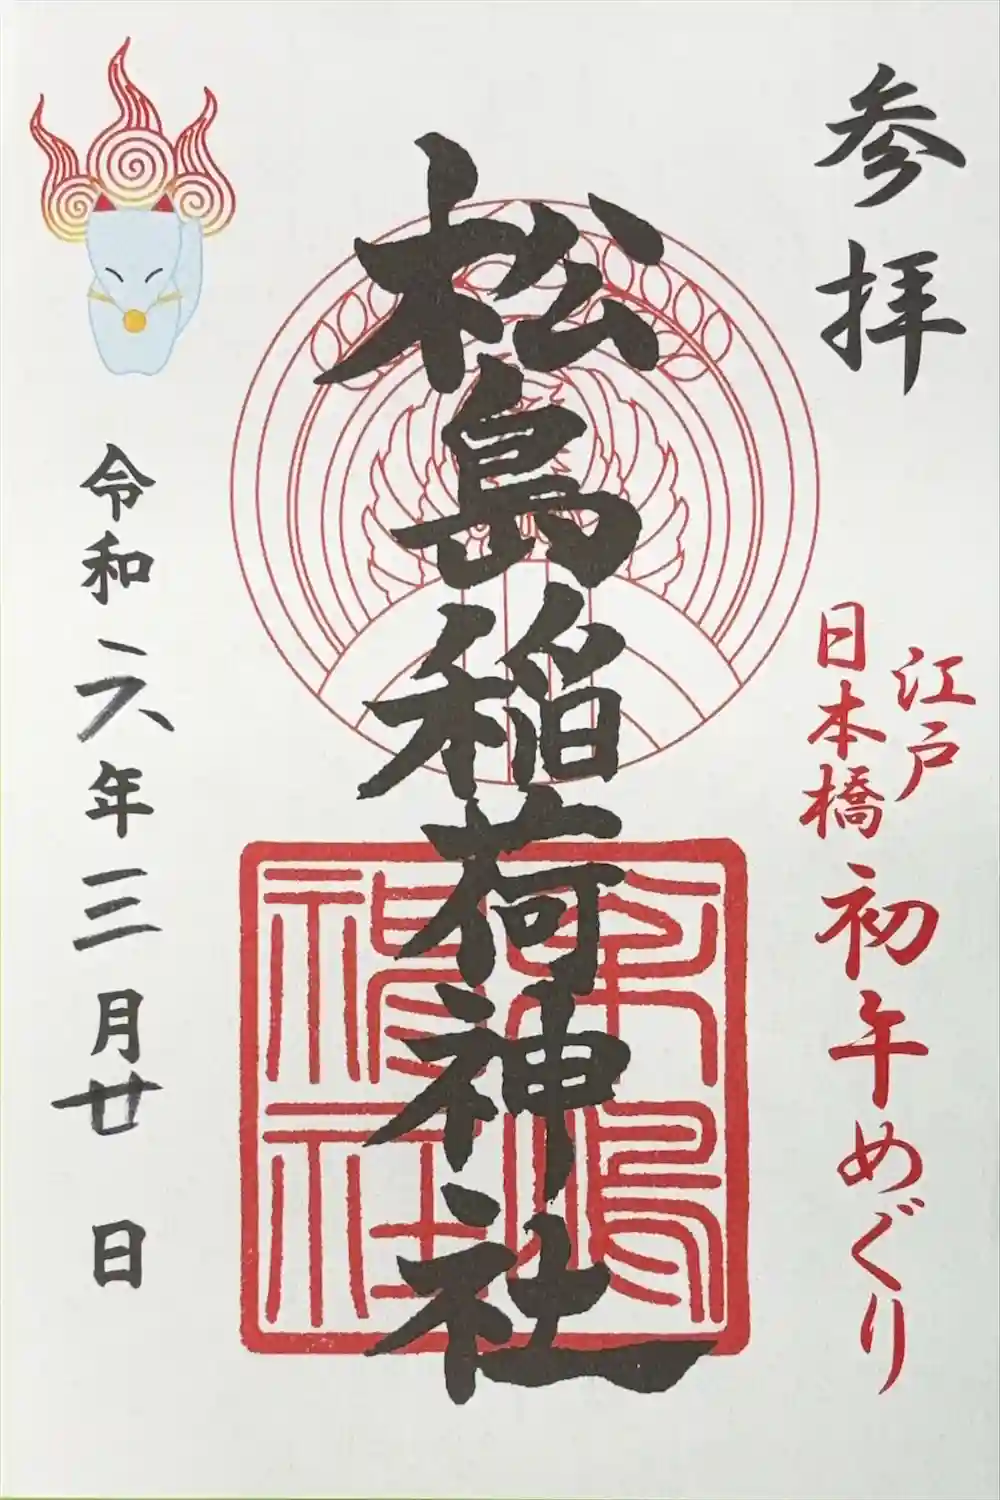 参拝
江戸
日本橋
初午めぐり
松島稲荷神社
令和六年三月廿日